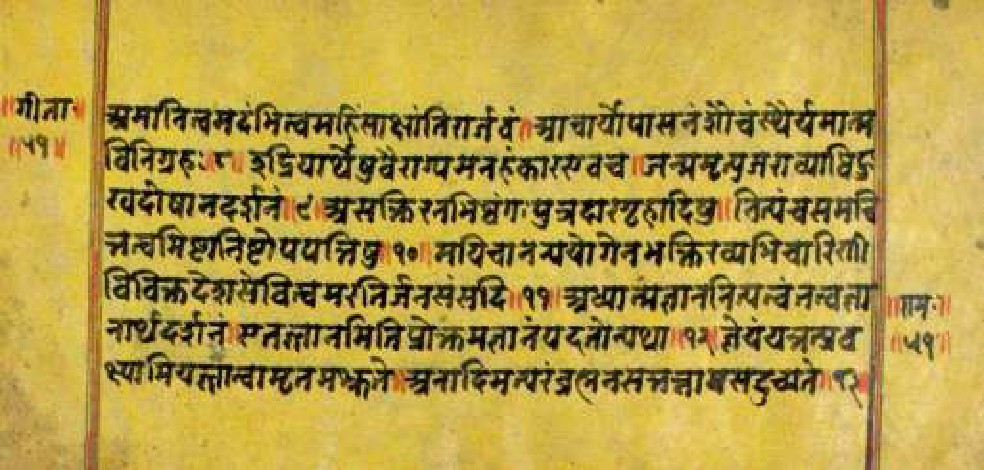 ॥गीता॥
॥५१॥
अमानित्वमदंभित्वमहिंसाक्षांतिरार्जवं॥आचार्योपासनंशौचंस्थैर्यमात्म
विनिग्रहः॥८॥इंद्रियार्थेषुवैराग्यमनहंकारएवच॥जन्ममृत्युजराव्याधिदुः
खदोषानदर्शनं॥९॥असक्तिरनभिष्वंगःपुत्रदारगृहादिषु॥नित्यंचसमचि
त्तत्वमिष्टानिष्टोपपत्तिषु॥१०॥मयिचानन्ययोगेनभक्तिरव्यभिचारिणी
विविक्तदेशसेवित्वमरतिर्जनसंसदि॥११॥अध्यात्मज्ञाननित्यत्वंतत्वज्ञा
नार्थदर्शनं॥एतज्ज्ञानमितिप्रोक्तमज्ञानंयदतोन्यथा॥१२॥ज्ञेयंयत्तत्प्रव
क्ष्यामियज्ज्ञात्वामृतमश्नुते॥अनादिमत्परंब्रह्मनसत्तन्नासदुच्यते॥१३॥
॥राम॥
॥५१॥